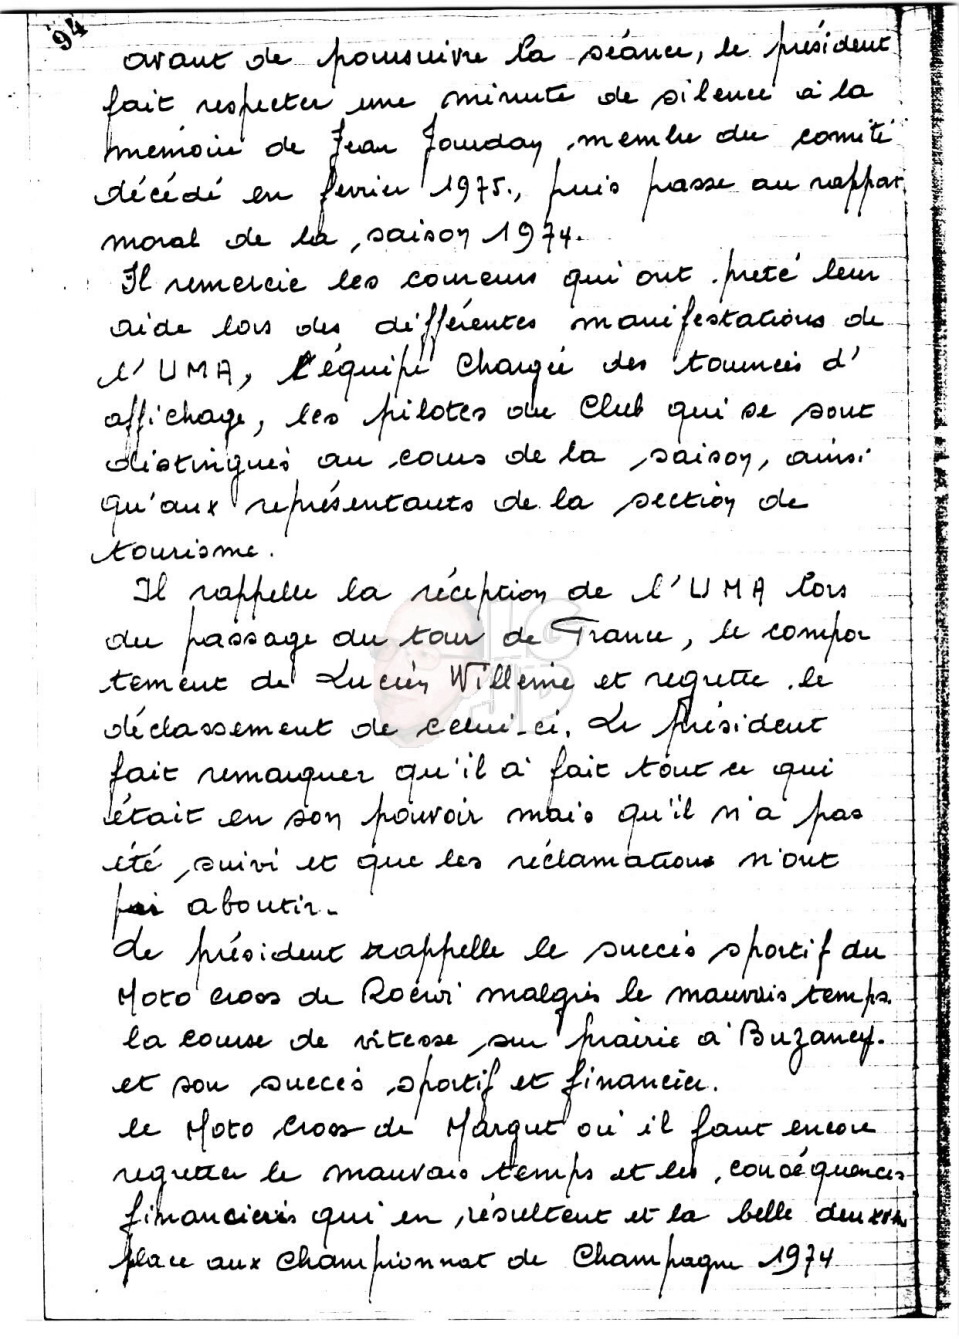 94
avant de poursuivre la séance, le président
fait respecter une minute de silence à la
mémoire de Jean Jourday membre du comité
décédé en fevrier 1975., puis passe au rappor
moral de la saison 1974.
Il remercie les coureurs qui ont preté leur
aide lors des différentes manifestations de
l'UMA, l'équipe chargée des tournées d'
affichage, les pilotes du Club qui se sont
distingués au cours de la saison, ainsi
qu'aux représentants de la section de
tourisme.
Il rappelle la réception de l'UMA lors
du passage du tour de France, le compor
tement de Lucien Willemie et regrette le
déclassement de celui-ci. Le Président
fait remarquer qu'il a fait tout ce qui
était en son pouvoir mais qu'il n'a pas
été suivi et que les réclamations n'ont
pu aboutir.
Le président rappelle le succès sportif du
Moto cross de malgrés le mauvais temps.
la course de vitesse sur prairie à Buzancy.
et son succès sportif et financier.
le Moto Cross de Margut où il faut encore
regretter le mauvais temps et les conséquences
financières qui en résultent et la belle deuxièm
place aux Championnat de Champagne 1974
LG
JP